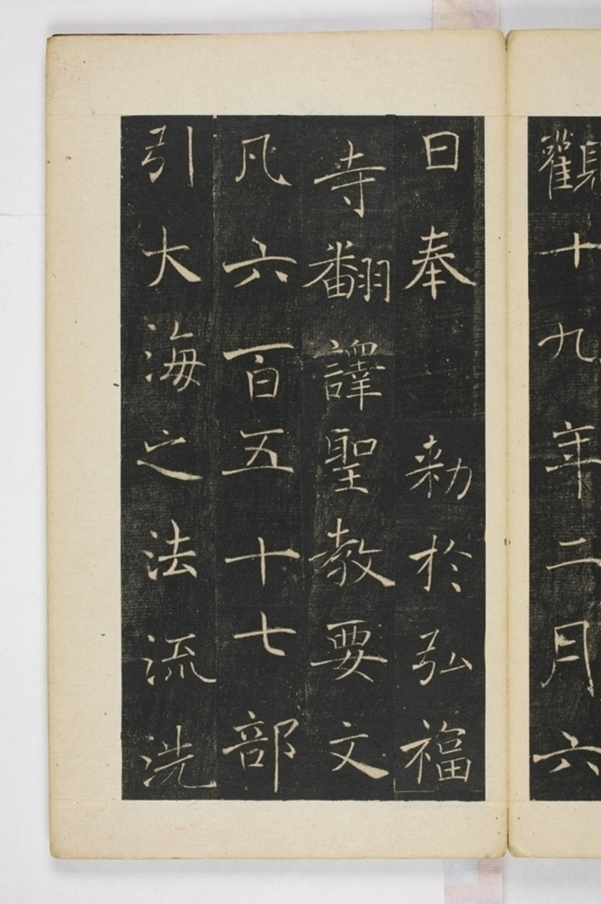 觀十九年二月六
日奉 勑於弘福
寺翻譯聖教要文
凡六百五十七部
引大海之法流洗